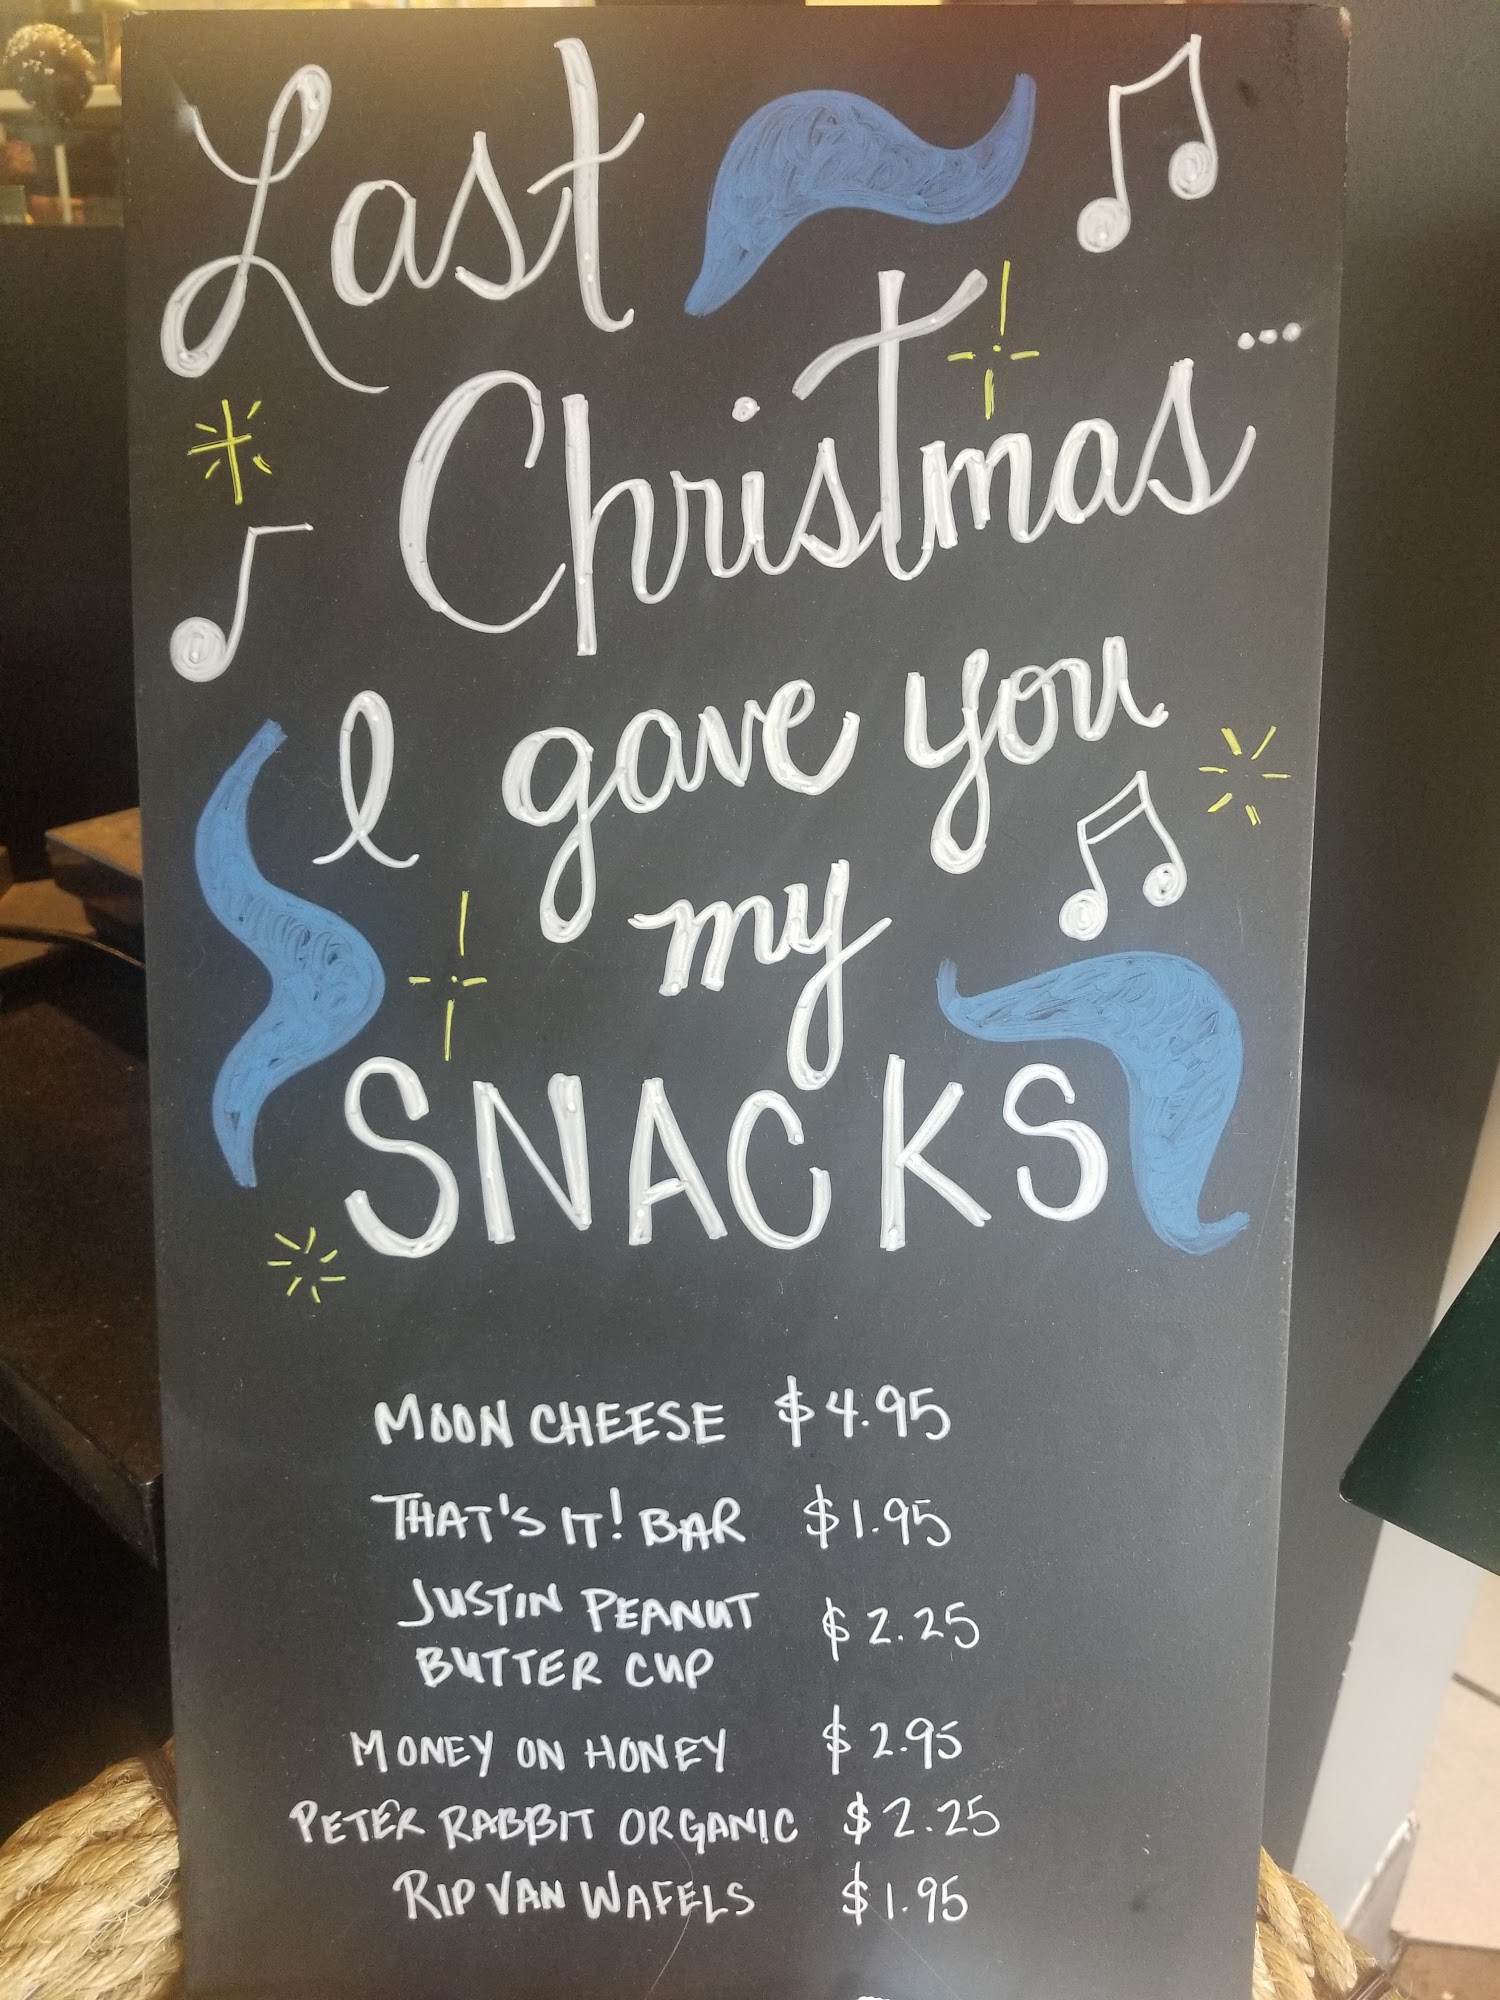 Last
Christmas...
I gave you
my
SNACKS
MOON CHEESE $4.95
THAT'S IT! BAR $1.95
JUSTIN PEANUT
BUTTER CUP $2.25
MONEY ON HONEY $2.95
PETER RABBIT ORGANIC $2.25
RIP VAN WAFELS $1.95